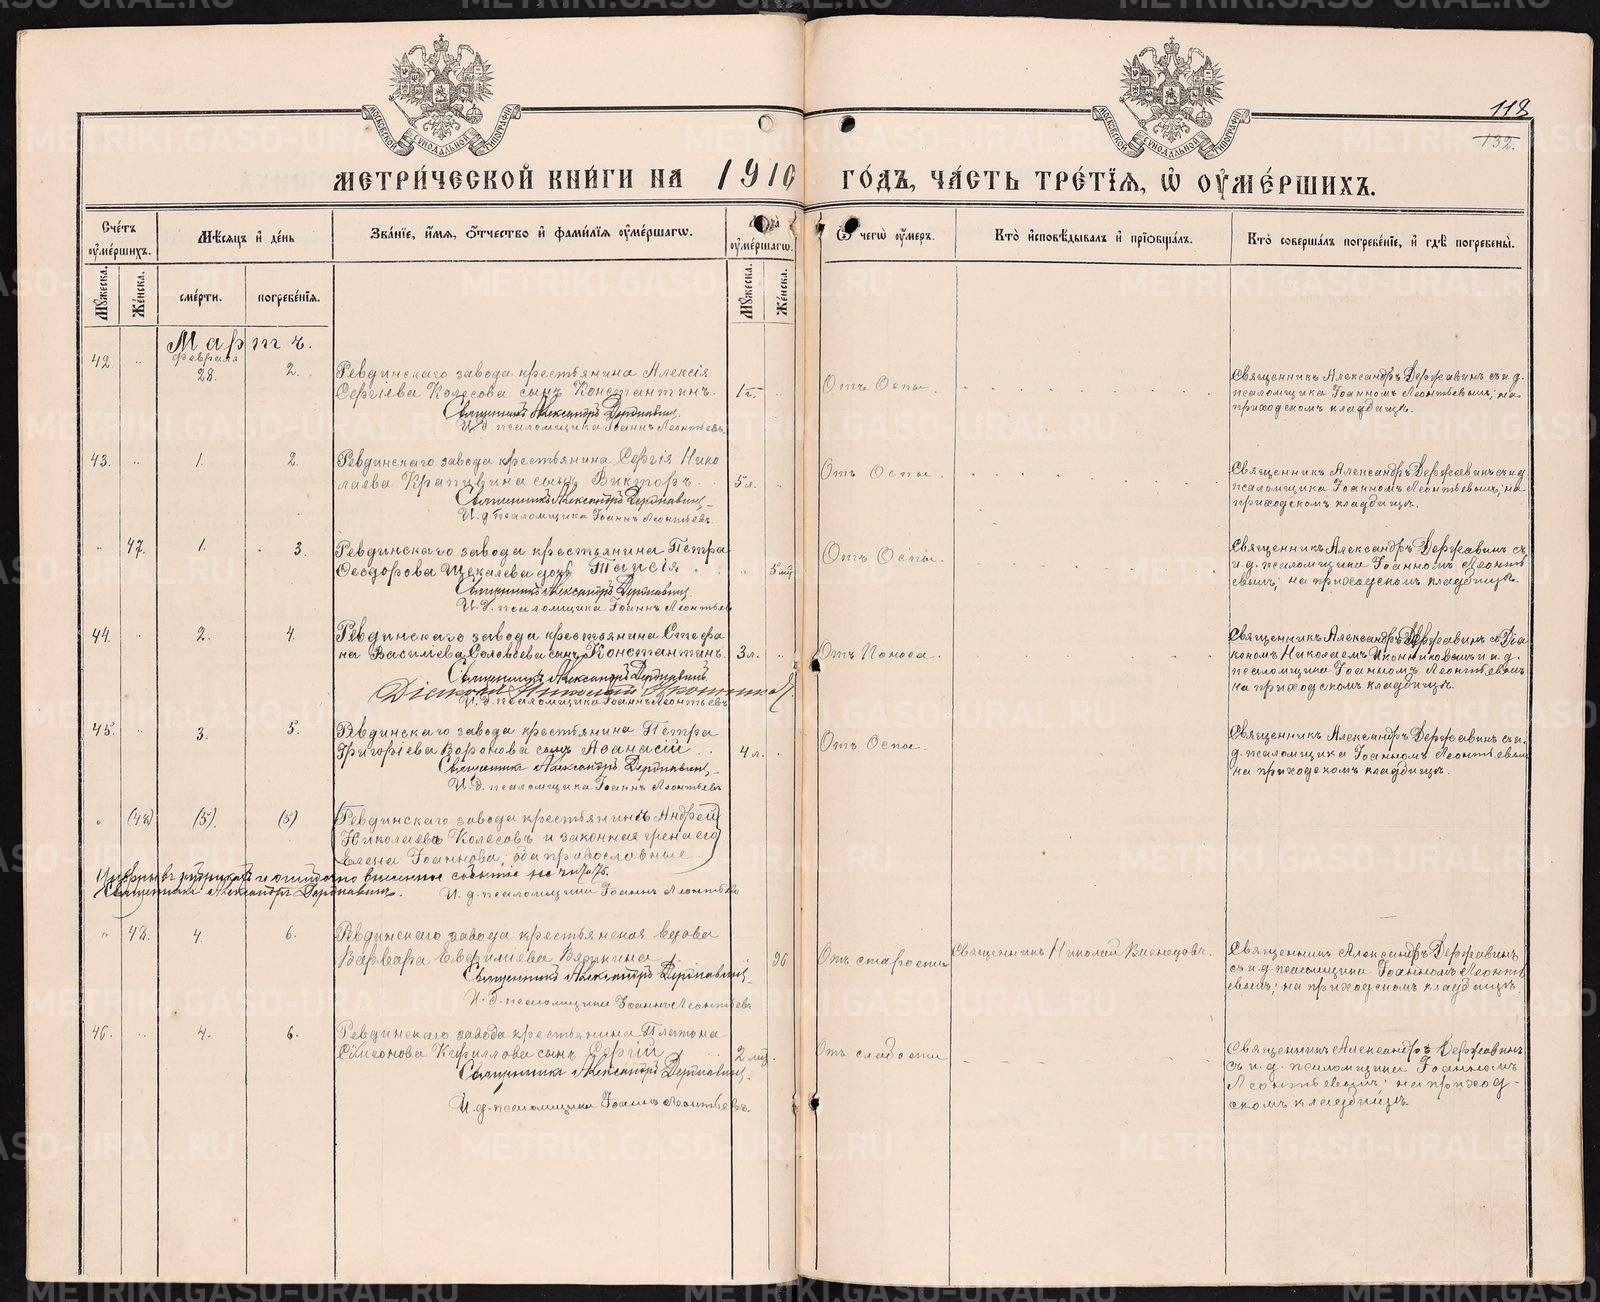 118
132.
МОСКОВСКОЙ СѴНОДАЛЬНОЙ ТИПОГРАФІИ
МОСКОВСКОЙ СѴНОДАЛЬНОЙ ТИПОГРАФІИ
МЕТРИ́ЧЕСКОЙ КНИ́ГИ НА 1910 ГО́ДЪ, ЧА́СТЬ ТРЕ́ТІѦ, Ѡ ОУМЕ́РШИХЪ.
Сче́тъ оумéршихъ.
Мѣ́сяцъ и де́нь
Зва́нїе, и́мѧ, ѻ́тчество и фами́лїѧ оумéршагѡ.
оумéршагѡ.
Ѿ чегѡ̀ оу́меръ.
Кто̀ исповѣ́дывалъ и прїобща́лъ.
Кто̀ соверша́лъ погребе́нїе, и гдѣ̀ погребены̀.
Мꙋжеска.
Же́нска.
сме́рти.
погребе́нїѧ.
Мꙋжеска.
Же́нска.
Мартъ.
42
Февраля
28.
2.
Ревдинскаго завода крестьянина Алексія
Сергіева Колесова сынъ Константинъ.
Священникъ Александръ Державинъ
И. д. псаломщика Іоаннъ Леонтьевъ.
1 г.
Отъ Оспы
Священникъ Александръ Державинъ съ и. д.
псаломщика Іоанномъ Леонтьевымъ; на
приходскомъ кладбищѣ.
43.
1.
2.
Ревдинскаго завода крестьянина Сергія Нико
лаева Крапивина сынъ Викторъ.
Священникъ Александръ Державинъ
И. д. псаломщика Іоаннъ Леонтьевъ.
5 л.
Отъ Оспы
Священникъ Александръ Державинъ съ и. д.
псаломщика Іоанномъ Леонтьевымъ; на
приходскомъ кладбищѣ.
47.
1.
3.
Ревдинскаго завода крестьянина Петра
Ѳеодорова Щекалева дочь Таисія
Священникъ Александръ Державинъ
И. д. псаломщика Іоаннъ Леонтьевъ
5 мц.
Отъ Оспы.
Священникъ Александръ Державинъ съ
и. д. псаломщика Іоанномъ Леонть
евымъ; на приходскомъ кладбищѣ.
44.
2.
4.
Ревдинскаго завода крестьянина Стефа
на Василіева Соловьева сынъ Константинъ.
Священникъ Александръ Державинъ
Діаконъ Николай Иконниковъ
И. д. псаломщика Іоаннъ Леонтьевъ
3 л.
Отъ Поноса.
Священникъ Александръ Державинъ съ Діа
кономъ Николаемъ Иконниковымъ и и. д.
псаломщика Іоанномъ Леонтьевымъ
на приходскомъ кладбищѣ.
45.
3.
5.
Ревдинскаго завода крестьянина Петра
Григоріева Воронова сынъ Аѳанасій
Священникъ Александръ Державинъ
И. д. псаломщика Іоаннъ Леонтьевъ
4 л.
Отъ Оспы.
Священникъ Александръ Державинъ съ и.
д. псаломщика Іоанномъ Леонтьевымъ
на приходскомъ кладбищѣ.
(48)
(5).
(5)
(Ревдинскаго завода крестьянинъ Андрей
Николаевъ Колесовъ и законная жена его
Елена Іоаннова, оба православные)
ошибочно
событіе
Священникъ Александръ Державинъ.
И. д. псаломщика Іоаннъ Леонтьевъ
48.
4.
6.
Ревдинскаго завода крестьянская вдова
Варвара Евфиміева Вяткина
Священникъ Александръ Державинъ
И. д. псаломщика Іоаннъ Леонтьевъ
96
Отъ старости
Священникъ Николай Виноградовъ.
Священникъ Александръ Державинъ
съ и. д. псаломщика Іоанномъ Леонть
евымъ; на приходскомъ кладбищѣ.
46.
4.
6.
Ревдинскаго завода крестьянина Платона
Симеонова Кириллова сынъ Сергій
Священникъ Александръ Державинъ.
И. д. псаломщика Іоаннъ Леонтьевъ.
2 мц.
Отъ слабости
Священникъ Александръ Державинъ
съ и. д. псаломщика Іоанномъ
Леонтьевымъ; на приход-
скомъ кладбищѣ.
METRIKI.GASO-URAL.RU